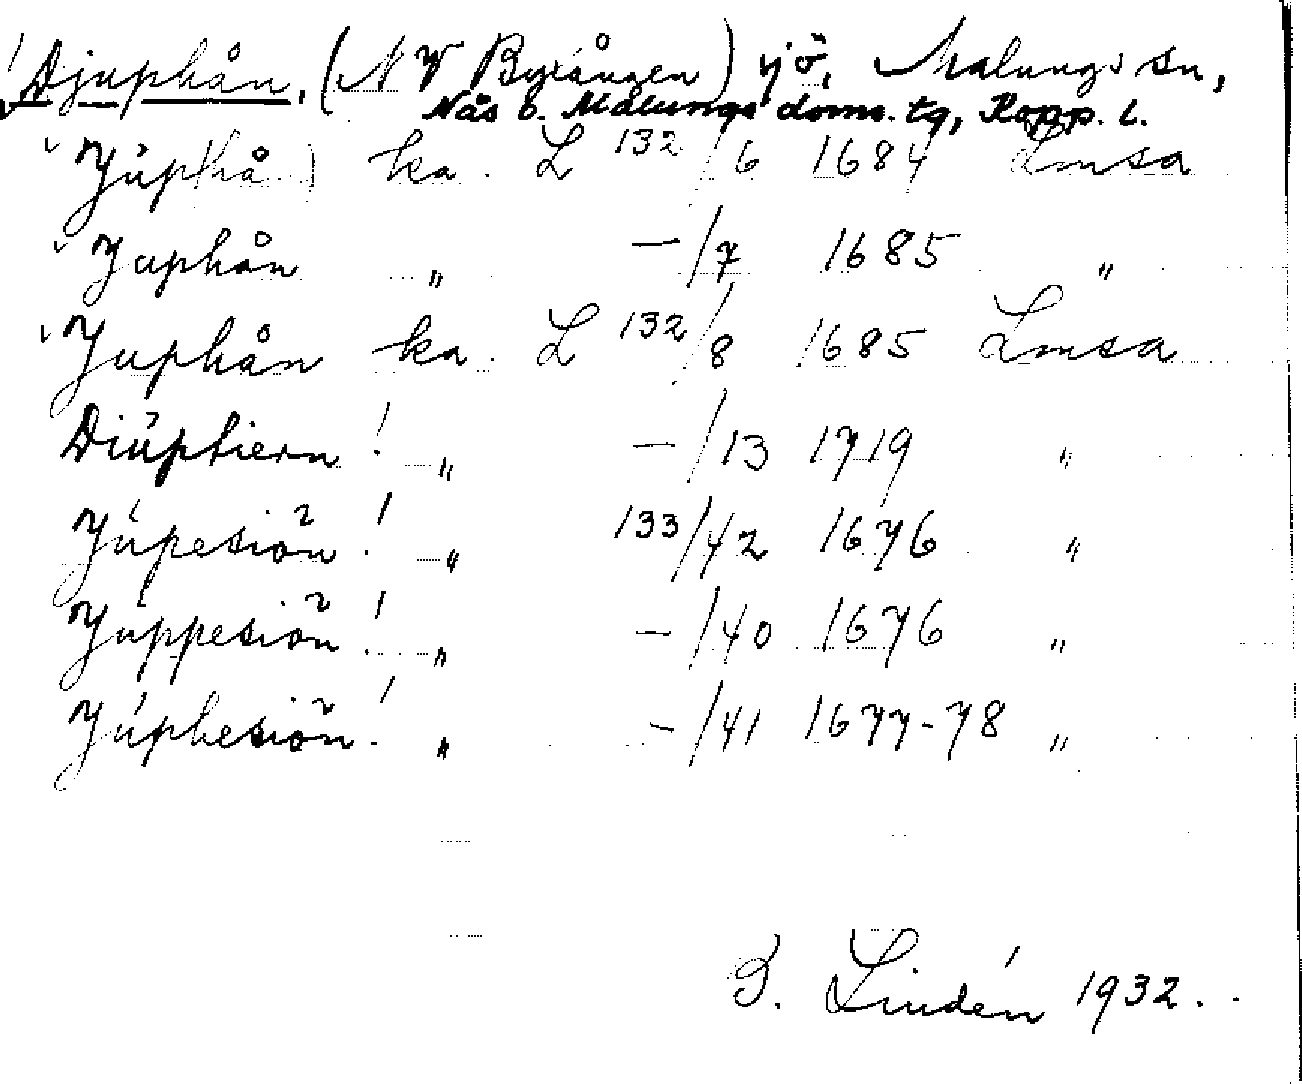 Djuphån, (NV Byxången) sjö, Malungs sn,
Nås o. Malungs doms. tg, Kopp. l.
Júp(hå) ka. L 132/6 1684 Lmsa
Juphån „ —/7 1685 „
Juphån ka. L 132/8 1685 Lmsa
Diúptiern! „ —/13 1719 „
Júpesiön! „ 133/42 1676 „
Júppesiön! „ —/40 1676 „
Júphesiön! „ —/41 1677-78 „
B. Lindén 1932.